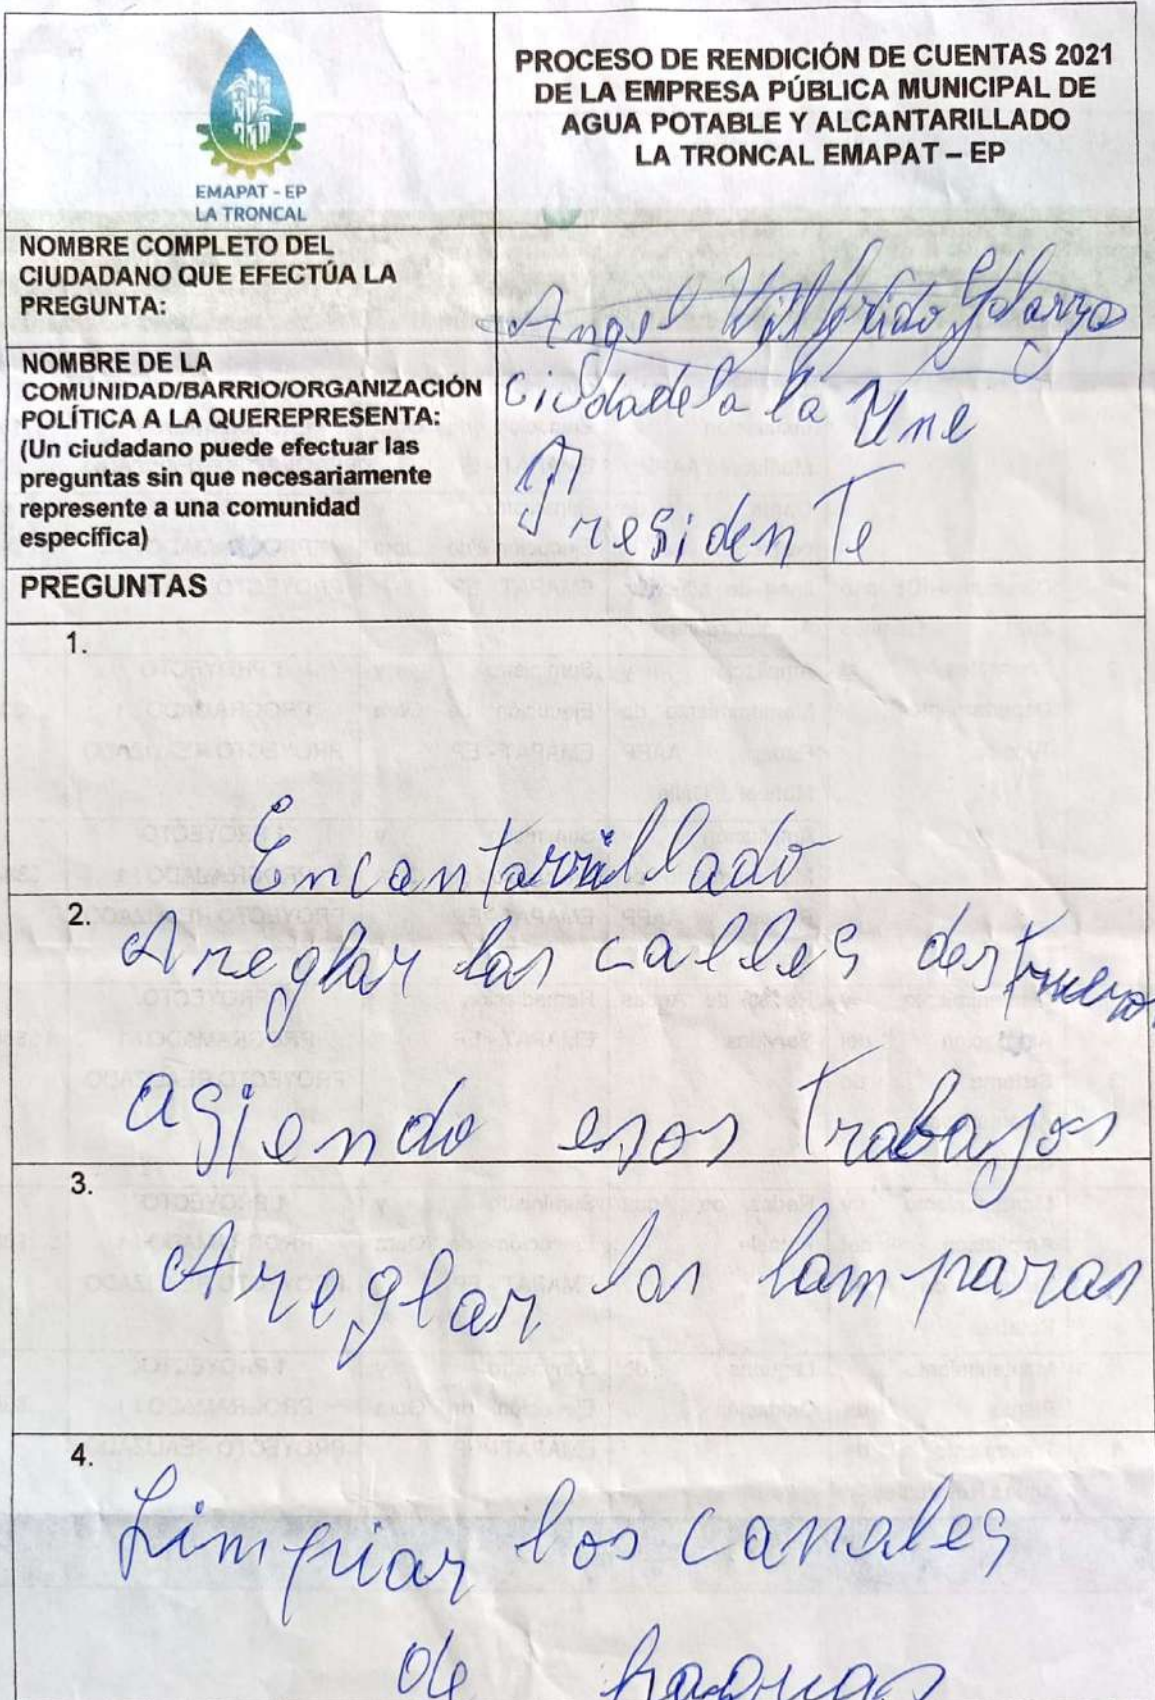 EMAPAT - EP
LA TRONCAL
PROCESO DE RENDICIÓN DE CUENTAS 2021
DE LA EMPRESA PÚBLICA MUNICIPAL DE
AGUA POTABLE Y ALCANTARILLADO
LA TRONCAL EMAPAT – EP
NOMBRE COMPLETO DEL
CIUDADANO QUE EFECTÚA LA
PREGUNTA:
Angel
NOMBRE DE LA
COMUNIDAD/BARRIO/ORGANIZACIÓN
POLÍTICA A LA QUEREPRESENTA:
(Un ciudadano puede efectuar las
preguntas sin que necesariamente
represente a una comunidad
específica)
Ciudadela la Une
Presidente
PREGUNTAS
1.
Encantarrillado
2.
Areglar las calles
asiendo esos trabajos
3.
Areglar las lamparas
4.
Limpiar los canales
de